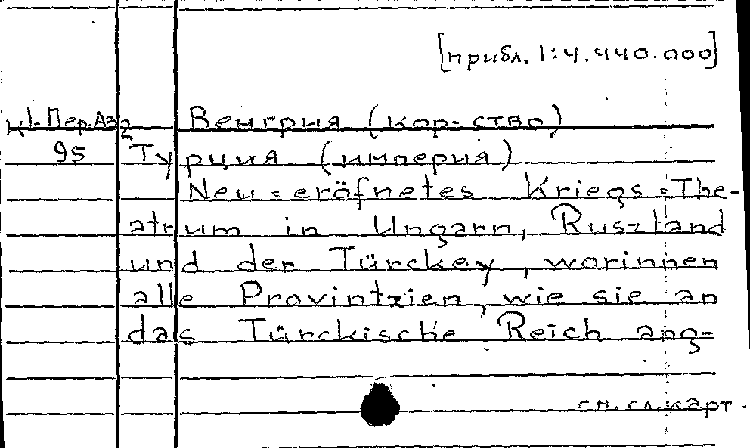 [прибл. 1:4.440.000]
К1-Пер.Аз 2 Венгрия (кор-ство)
95 Турция (империя)
Neu=eröfnetes Kriegs=The-
atrum in Ungarn, Ruszland
und der Türckey, worinnen
alle Provintzien, wie sie an
das Türckische Reich ang-
см. сл. карт.